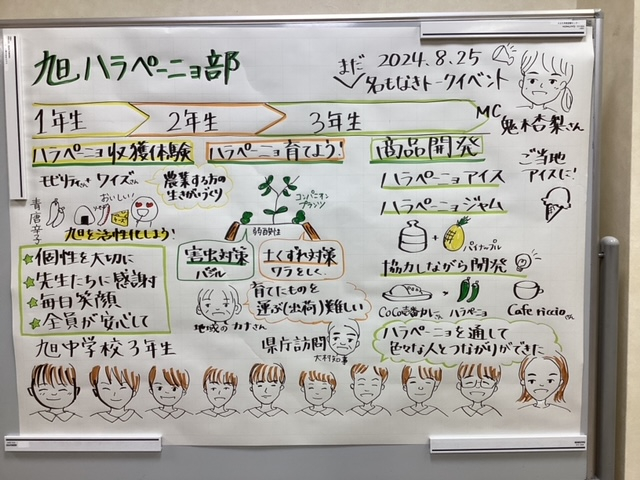 旭ハラペーニョ部
2024.8.25
まだ
名もなきトークイベント
MC
鬼木杏梨さん
1年生
2年生
3年生
ハラペーニョ収獲体験
モビリティさん+ワイズさん
農業する方の
生きがいづくり
おいしい!
青唐辛子
旭を活性化しよう!
☆個性を大切に
☆先生たちに感謝
☆毎日笑顔
☆全員が安心して
ハラペーニョ育てよう!
コンパニオン
プランツ
害虫対策
バジル
土くずれ対策
ワラをしく。
育てたものを
運ぶ(出荷)難しい
地域のカナさん
県庁訪問
大村知事
商品開発
ハラペーニョアイス
ハラペーニョジャム
ご当地
アイスに!
パイナップル
協力しながら開発
CoCo壱番カレーさん
ハラペーニョ
Cafe riccioさん
ハラペーニョを通して
色々な人とつながりができた
旭中学校3年生